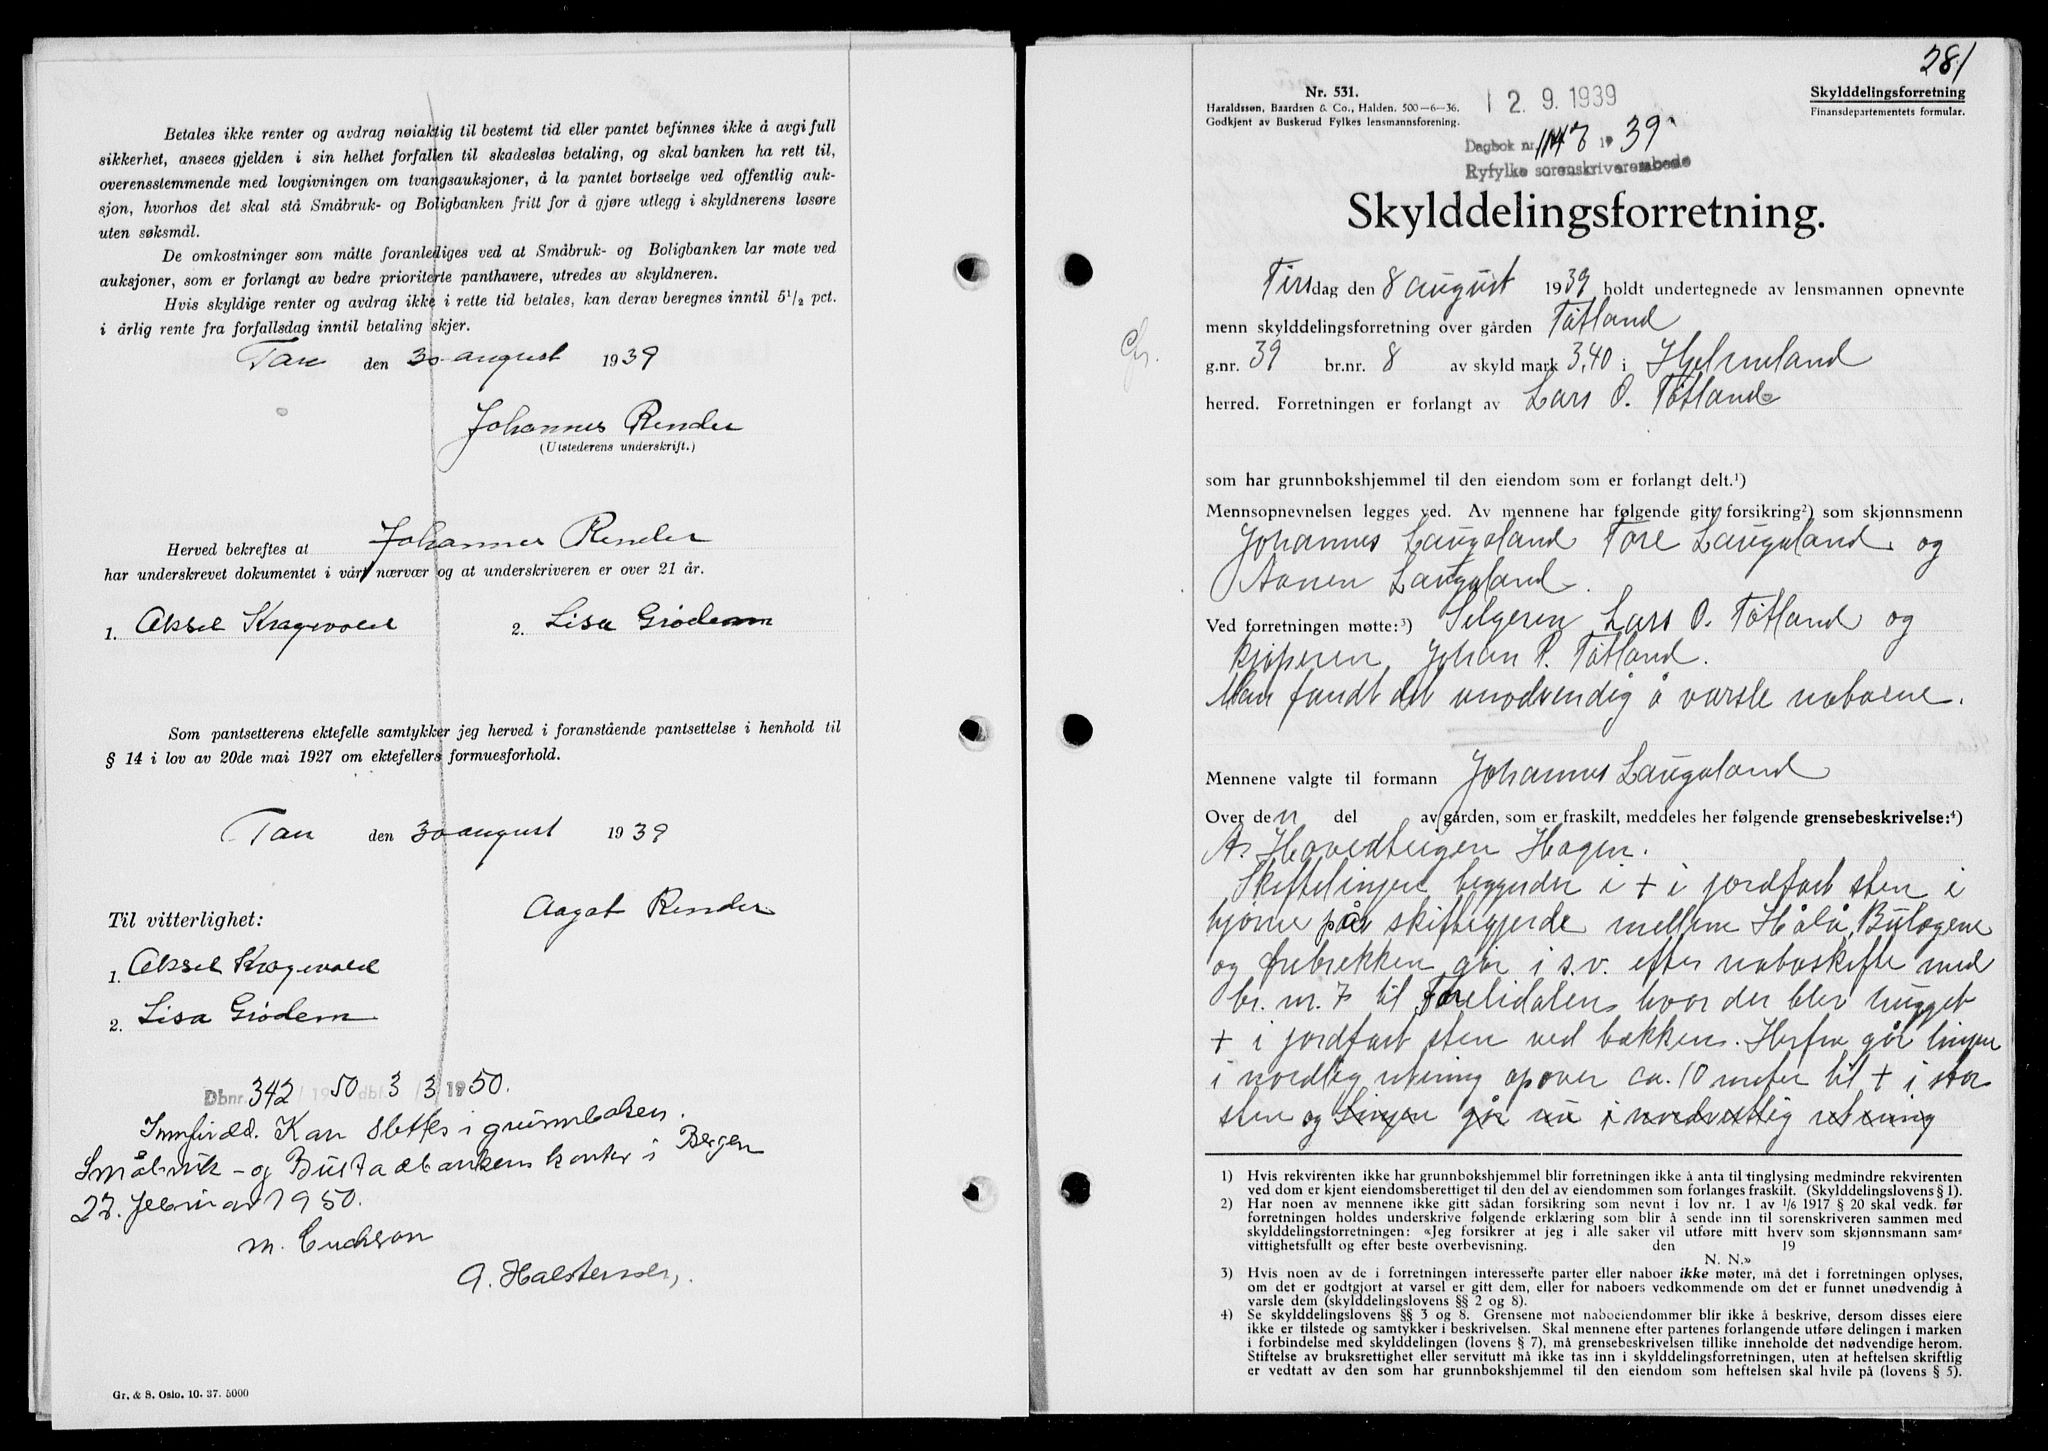 Betales ikke renter og avdrag nøiaktig til bestemt tid eller pantet befinnes ikke å avgi full
sikkerhet, ansees gjelden i sin helhet forfallen til skadesløs betaling, og skal banken ha rett til,
overensstemmende med lovgivningen om tvangsauksjoner, å la pantet bortselge ved offentlig auk-
sjon, hvorhos det skal stå Småbruk- og Boligbanken fritt for å gjøre utlegg i skyldnerens løsøre
uten søksmål.
De omkostninger som måtte foranlediges ved at Småbruk- og Boligbanken lar møte ved
auksjoner, som er forlangt av bedre prioriterte panthavere, utredes av skyldneren.
Hvis skyldige renter og avdrag ikke i rette tid betales, kan derav beregnes inntil 5½ pct.
i årlig rente fra forfallsdag inntil betaling skjer.
Tau den 30 august 1939
Johannes Render
(Utstederens underskrift.)
Herved bekreftes at Johannes Render
har underskrevet dokumentet i vårt nærvær og at underskriveren er over 21 år.
1. Aksel Kragevold 2. Lisa Grødem
Som pantsetterens ektefelle samtykker jeg herved i foranstående pantsettelse i henhold til
§ 14 i lov av 20de mai 1927 om ektefellers formuesforhold.
Tau den 30 august 1939
Aagot Render
Til vitterlighet:
1. Aksel Kragevold
2. Lisa Grødem
Dbnr. 342 / 1950 dbl. 3 / 3 1950.
Innfridd. Kan slettes i grunnboken.
Småbruk- og Bustadbankens kontor i Bergen
27. februar 1950.
A. Halstensen,
Gr. & S. Oslo. 10. 37. 5000
281
Nr. 531.
Haraldssøn, Baardsen & Co., Halden. 500—6—36.
Godkjent av Buskerud Fylkes lensmannsforening.
12. 9. 1939
Dagbok nr. 1147 1939
Ryfylke sorenskriverembede
Skylddelingsforretning
Finansdepartementets formular.
Skylddelingsforretning.
Tirsdag den 8 august 1939 holdt undertegnede av lensmannen opnevnte
menn skylddelingsforretning over gården Tøtland
g.nr. 39 br.nr. 8 av skyld mark 3,40 i Hjelmeland
herred. Forretningen er forlangt av Lars O. Tøtland
som har grunnbokshjemmel til den eiendom som er forlangt delt.¹)
Mennsopnevnelsen legges ved. Av mennene har følgende gitt forsikring²) som skjønnsmenn
Johannes Laugaland Tore Laugaland og
Aanen Laugaland.
Ved forretningen møtte:³) Selgeren Lars O. Tøtland og
kjøperen Johan P. Tøtland.
Man fandt det unødvendig å varsle naboene.
Mennene valgte til formann Johannes Laugaland
Over den del av gården, som er fraskilt, meddeles her følgende grensebeskrivelse:⁴)
A. Hovedteigen Hagen.
Skiftelinjen begynder i + i jordfast sten i
hjørne på skiftegjerde mellem Hålå, Bulægene
og går i s.v. efter naboskifte med
br. nr. 7 til hvor der blev hugget
+ i jordfast sten ved bækken. Herfra går linjen
i nordlig retning opover ca. 10 meter til + i stor
sten og Linjen går nu i nordvestlig retning
1) Hvis rekvirenten ikke har grunnbokshjemmel blir forretningen ikke å anta til tinglysing medmindre rekvirenten
ved dom er kjent eiendomsberettiget til den del av eiendommen som forlanges fraskilt. (Skylddelingslovens § 1).
2) Har noen av mennene ikke gitt sådan forsikring som nevnt i lov nr. 1 av 1/6 1917 § 20 skal vedk. før
forretningen holdes underskrive følgende erklæring som blir å sende inn til sorenskriveren sammen med
skylddelingsforretningen: «Jeg forsikrer at jeg i alle saker vil utføre mitt hverv som skjønnsmann sam-
vittighetsfullt og efter beste overbevisning. den 19
N. N.»
3) Hvis noen av de i forretningen interesserte parter eller naboer ikke møter, må det i forretningen oplyses,
om det er godtgjort at varsel er gitt dem, eller for naboers vedkommende om det er funnet unødvendig å
varsle dem (skylddelingslovens §§ 2 og 8).
4) Se skylddelingslovens §§ 3 og 8. Grensene mot naboeiendommer blir ikke å beskrive, dersom disses eiere
ikke er tilstede og samtykker i beskrivelsen. Skal mennene efter partenes forlangende utføre delingen i marken
i forbindelse med skylddelingen (lovens § 7), må grensebeskrivelsen tillike inneholde det nødvendige herom.
Stiftelse av bruksrettighet eller servitutt må ikke tas inn i skylddelingsforretningen, uten at heftelsen skriftlig
er vedtatt av den som har grunnbokshjemmel til den eiendom som heftelsen skal hvile på (lovens § 5).